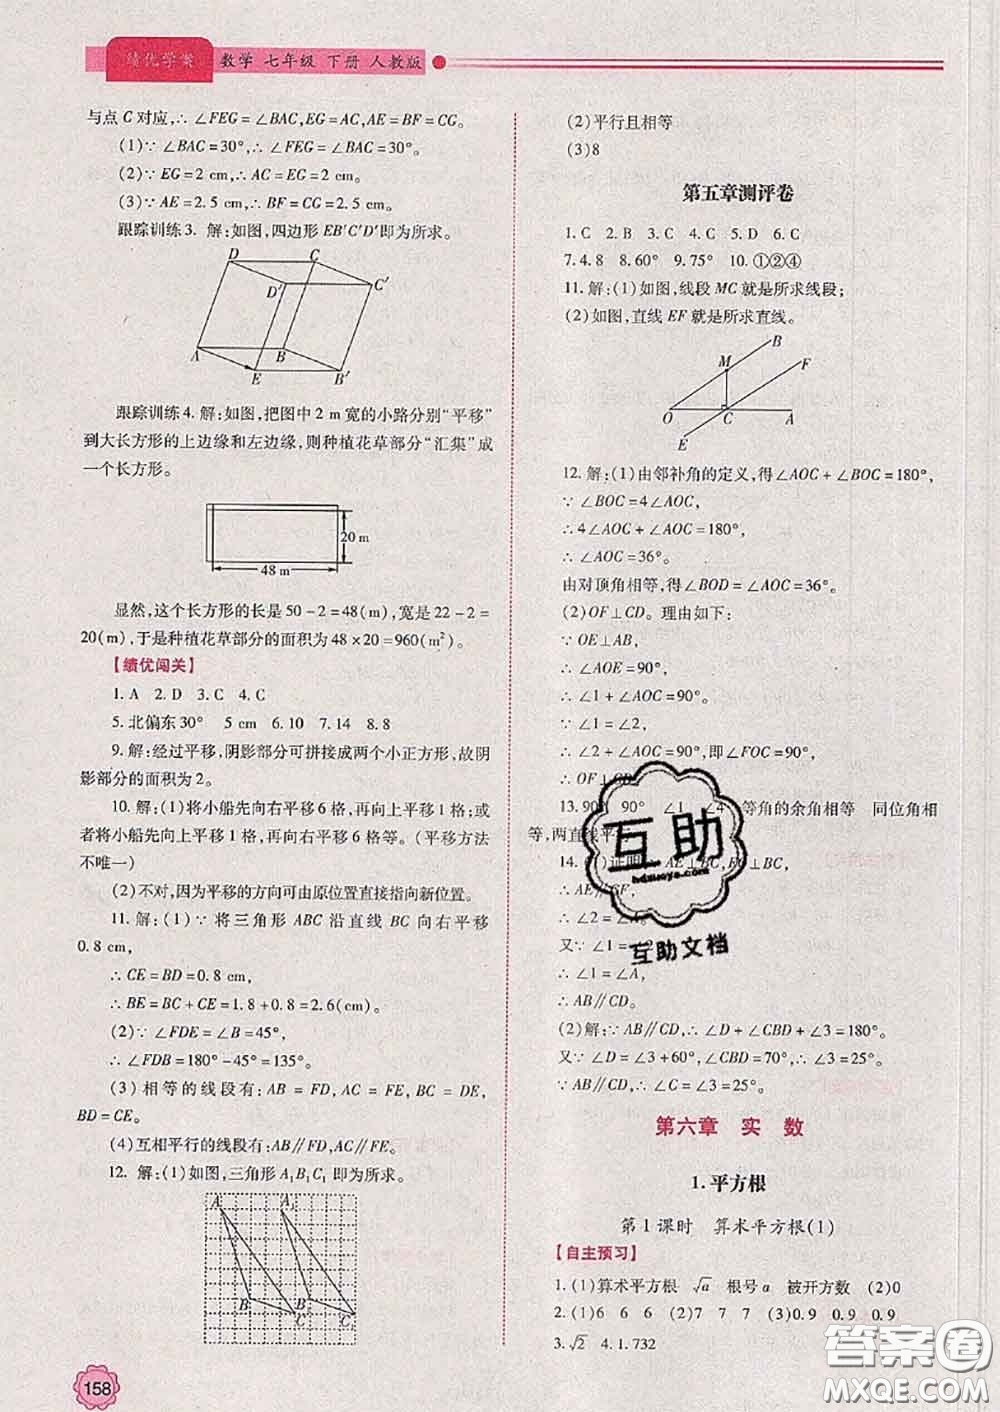 绩优学案
数学 七年级 下册 人教版
与点 C 对应,∴ ∠FEG=∠BAC,EG=AC,AE=BF=CG。
(1)∵ ∠BAC=30°,∴ ∠FEG=∠BAC=30°。
(2)∵ EG=2 cm,∴ AC=EG=2 cm。
(3)∵ AE=2.5 cm,∴ BF=CG=2.5 cm。
跟踪训练3. 解:如图,四边形 EB′C′D′即为所求。
D C
D′ C′
A B
E B′
跟踪训练4. 解:如图,把图中 2 m 宽的小路分别“平移”
到大长方形的上边缘和左边缘,则种植花草部分“汇集”成
一个长方形。
20 m
48 m
显然,这个长方形的长是 50-2=48(m),宽是 22-2=
20(m),于是种植花草部分的面积为 48×20=960(m²)。
【绩优闯关】
1. A 2. D 3. C 4. C
5. 北偏东 30° 5 cm 6. 10 7. 14 8. 8
9. 解:经过平移,阴影部分可拼接成两个小正方形,故阴
影部分的面积为 2。
10. 解:(1)将小船先向右平移 6 格,再向上平移 1 格;或
者将小船先向上平移 1 格,再向右平移 6 格等。(平移方法
不唯一)
(2)不对,因为平移的方向可由原位置直接指向新位置。
11. 解:(1)∵ 将三角形 ABC 沿直线 BC 向右平移
0.8 cm,
∴ CE=BD=0.8 cm,
∴ BE=BC+CE=1.8+0.8=2.6(cm)。
(2)∵ ∠FDE=∠B=45°,
∴ ∠FDB=180°-45°=135°。
(3)相等的线段有:AB=FD,AC=FE,BC=DE,
BD=CE。
(4)互相平行的线段有:AB∥FD,AC∥FE。
12. 解:(1)如图,三角形 A₁B₁C₁ 即为所求。
A A₁
B B₁
C C₁
158
(2)平行且相等
(3)8
第五章测评卷
1. C 2. B 3. C 4. C 5. D 6. C
7. 4.8 8. 60° 9. 75° 10. ①②④
11. 解:(1)如图,线段 MC 就是所求线段;
(2)如图,直线 EF 就是所求直线。
B
M F
O C A
E
12. 解:(1)由邻补角的定义,得∠AOC+∠BOC=180°,
∵ ∠BOC=4∠AOC,
∴ 4∠AOC+∠AOC=180°,
∴ ∠AOC=36°。
由对顶角相等,得∠BOD=∠AOC=36°。
(2)OF⊥CD。理由如下:
∵ OE⊥AB,
∴ ∠AOE=90°,
∴ ∠1+∠AOC=90°。
∵ ∠1=∠2,
∴ ∠2+∠AOC=90°,即∠FOC=90°,
∴ OF⊥CD。
13. 90° 90° ∠1 ∠4 等角的余角相等 同位角相
等,两直线平行
14. (1)证明:∵ AE⊥BC,FG⊥BC,
∴ AE∥GF,
∴ ∠2=∠A。
又∵ ∠1=∠2,
∴ ∠1=∠A,
∴ AB∥CD。
(2)解:∵ AB∥CD,∴ ∠D+∠CBD+∠3=180°。
又∵ ∠D=∠3+60°,∠CBD=70°,∴ ∠3=25°。
∵ AB∥CD,∴ ∠C=∠3=25°。
第六章 实 数
1. 平方根
第 1 课时 算术平方根(1)
【自主预习】
1. (1)算术平方根 √a 根号 a 被开方数 (2)0
2. (1)6 6 6 (2)7 7 7 (3)0.9 0.9 0.9
3. √2 4. 1.732
互助
hdzuoye.com
互助文档
答案圈
MXQE.COM